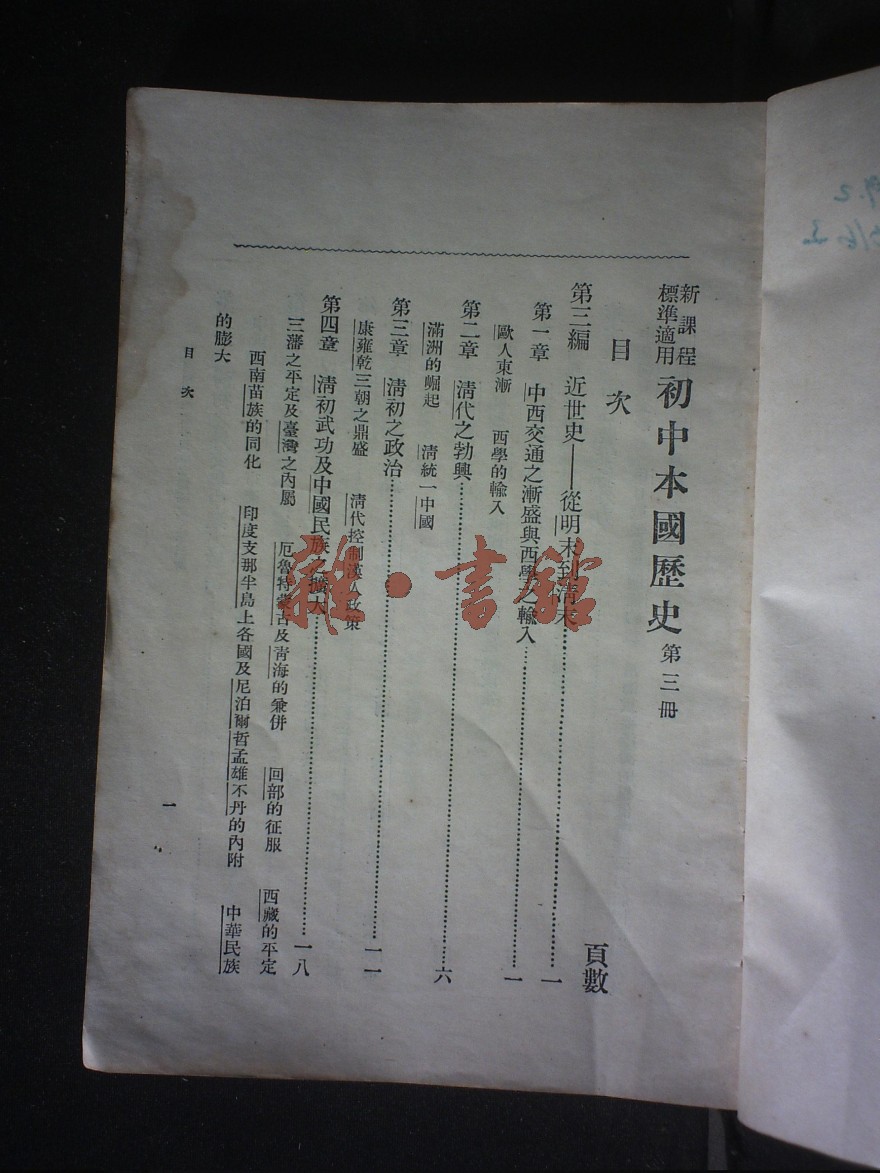 新課程標準適用 初中本國歷史 第三冊
目次
頁數
第三編 近世史——從明末到清末……一
第一章 中西交通之漸盛與西學之輸入……一
歐人東漸 西學的輸入
第二章 清代之勃興……六
滿洲的崛起 清統一中國
第三章 清初之政治……一一
康雍乾三朝之鼎盛 清代控制漢人政策
第四章 清初武功及中國民族之擴大……一八
三藩之平定及臺灣之內屬 厄魯特蒙古及青海的兼併 回部的征服 西藏的平定
西南苗族的同化 印度支那半島上各國及尼泊爾哲孟雄不丹的內附 中華民族
的膨大
目次
一
雜·書館